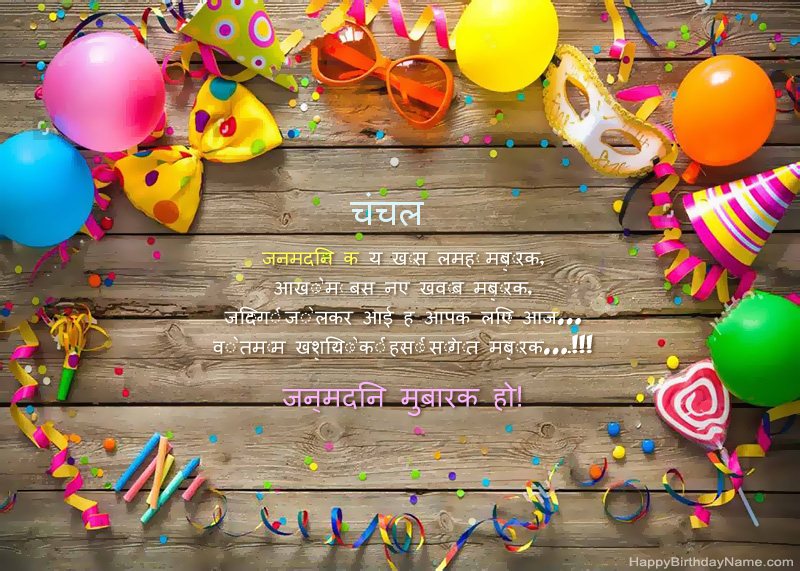 चंचल
जनमदिन क य खास लमहा मुबारक,
आखो में बस नए खवाब मुबारक,
जिंदगी जो लेकर आई ह आपक लिए आज...
वो तमाम खुशियों की हसीं सौगात मुबारक...!!!
जन्मदिन मुबारक हो!
HappyBirthdayName.com